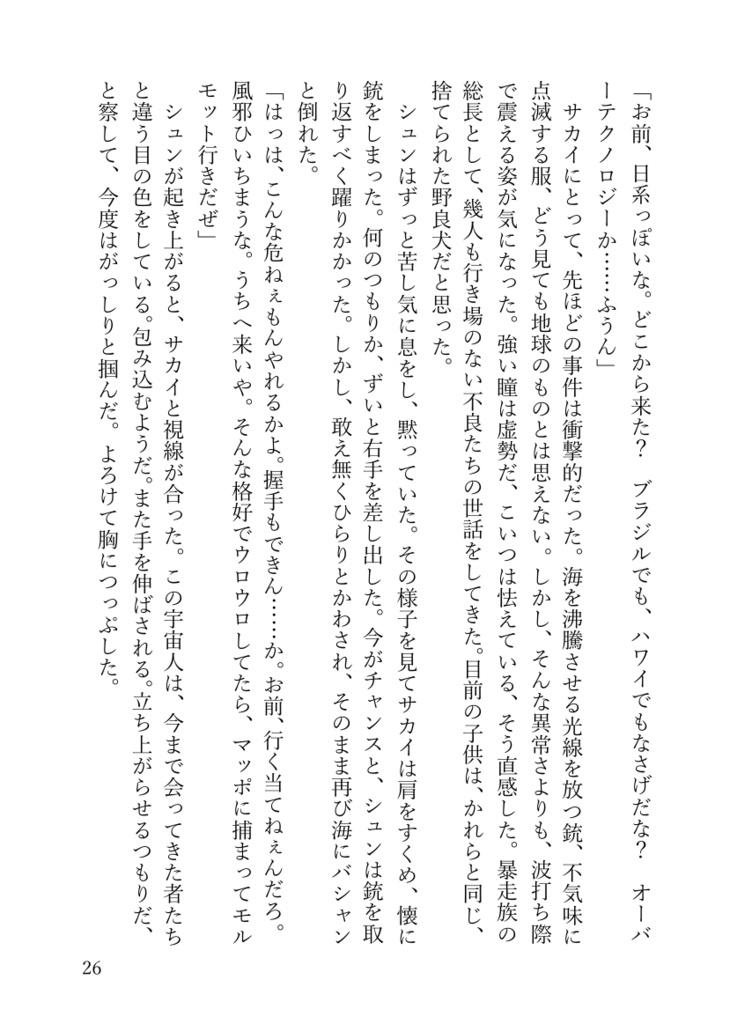 「お前、日系っぽいな。どこから来た？　ブラジルでも、ハワイでもなさげだな？　オーバ
ーテクノロジーか……ふうん」
　サカイにとって、先ほどの事件は衝撃的だった。海を沸騰させる光線を放つ銃、不気味に
点滅する服、どう見ても地球のものとは思えない。しかし、そんな異常さよりも、波打ち際
で震える姿が気になった。強い瞳は虚勢だ、こいつは怯えている、そう直感した。暴走族の
総長として、幾人も行き場のない不良たちの世話をしてきた。目前の子供は、かれらと同じ、
捨てられた野良犬だと思った。
　シュンはずっと苦し気に息をし、黙っていた。その様子を見てサカイは肩をすくめ、懐に
銃をしまった。何のつもりか、ずいと右手を差し出した。今がチャンスと、シュンは銃を取
り返すべく躍りかかった。しかし、敢え無くひらりとかわされ、そのまま再び海にバシャン
と倒れた。
「はっは、こんな危ねぇもんやれるかよ。握手もできん……か。お前、行く当てねぇんだろ。
風邪ひいちまうな。うちへ来いや。そんな格好でウロウロしてたら、マッポに捕まってモル
モット行きだぜ」
　シュンが起き上がると、サカイと視線が合った。この宇宙人は、今まで会ってきた者たち
と違う目の色をしている。包み込むようだ。また手を伸ばされる。立ち上がらせるつもりだ、
と察して、今度はがっしりと掴んだ。よろけて胸につっぷした。
26